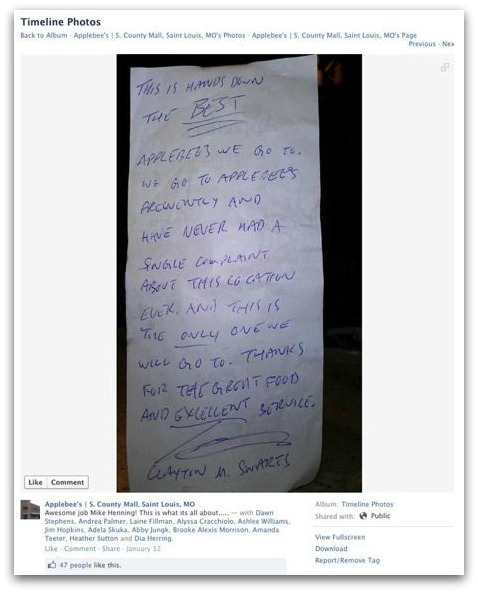 Timeline Photos
Back to Album · Applebee's | S. County Mall, Saint Louis, MO's Photos · Applebee's | S. County Mall, Saint Louis, MO's Page
Previous · Nex
THIS IS HANDS DOWN
THE BEST
APPLEBEES WE GO TO.
WE GO TO APPLEBEES
AND
HAVE NEVER HAD A
SINGLE COMPLAINT
ABOUT THIS LOCATION
EVER. AND THIS IS
THE ONLY ONE WE
WILL GO TO. THANKS
FOR THE GREAT FOOD
AND EXCELLENT SERVICE.
CLAYTON M. SWARTS
Like Comment
Applebee's | S. County Mall, Saint Louis, MO
Awesome job Mike Henning! This is what its all about..... — with Dawn
Stephens, Andrea Palmer, Laine Fillman, Alyssa Cracchiolo, Ashlee Williams,
Jim Hopkins, Adela Skuka, Abby Jungk, Brooke Alexis Morrison, Amanda
Teeter, Heather Sutton and Dia Herring.
Like · Comment · Share · January 12
47 people like this.
Album: Timeline Photos
Shared with: Public
View Fullscreen
Download
Report/Remove Tag